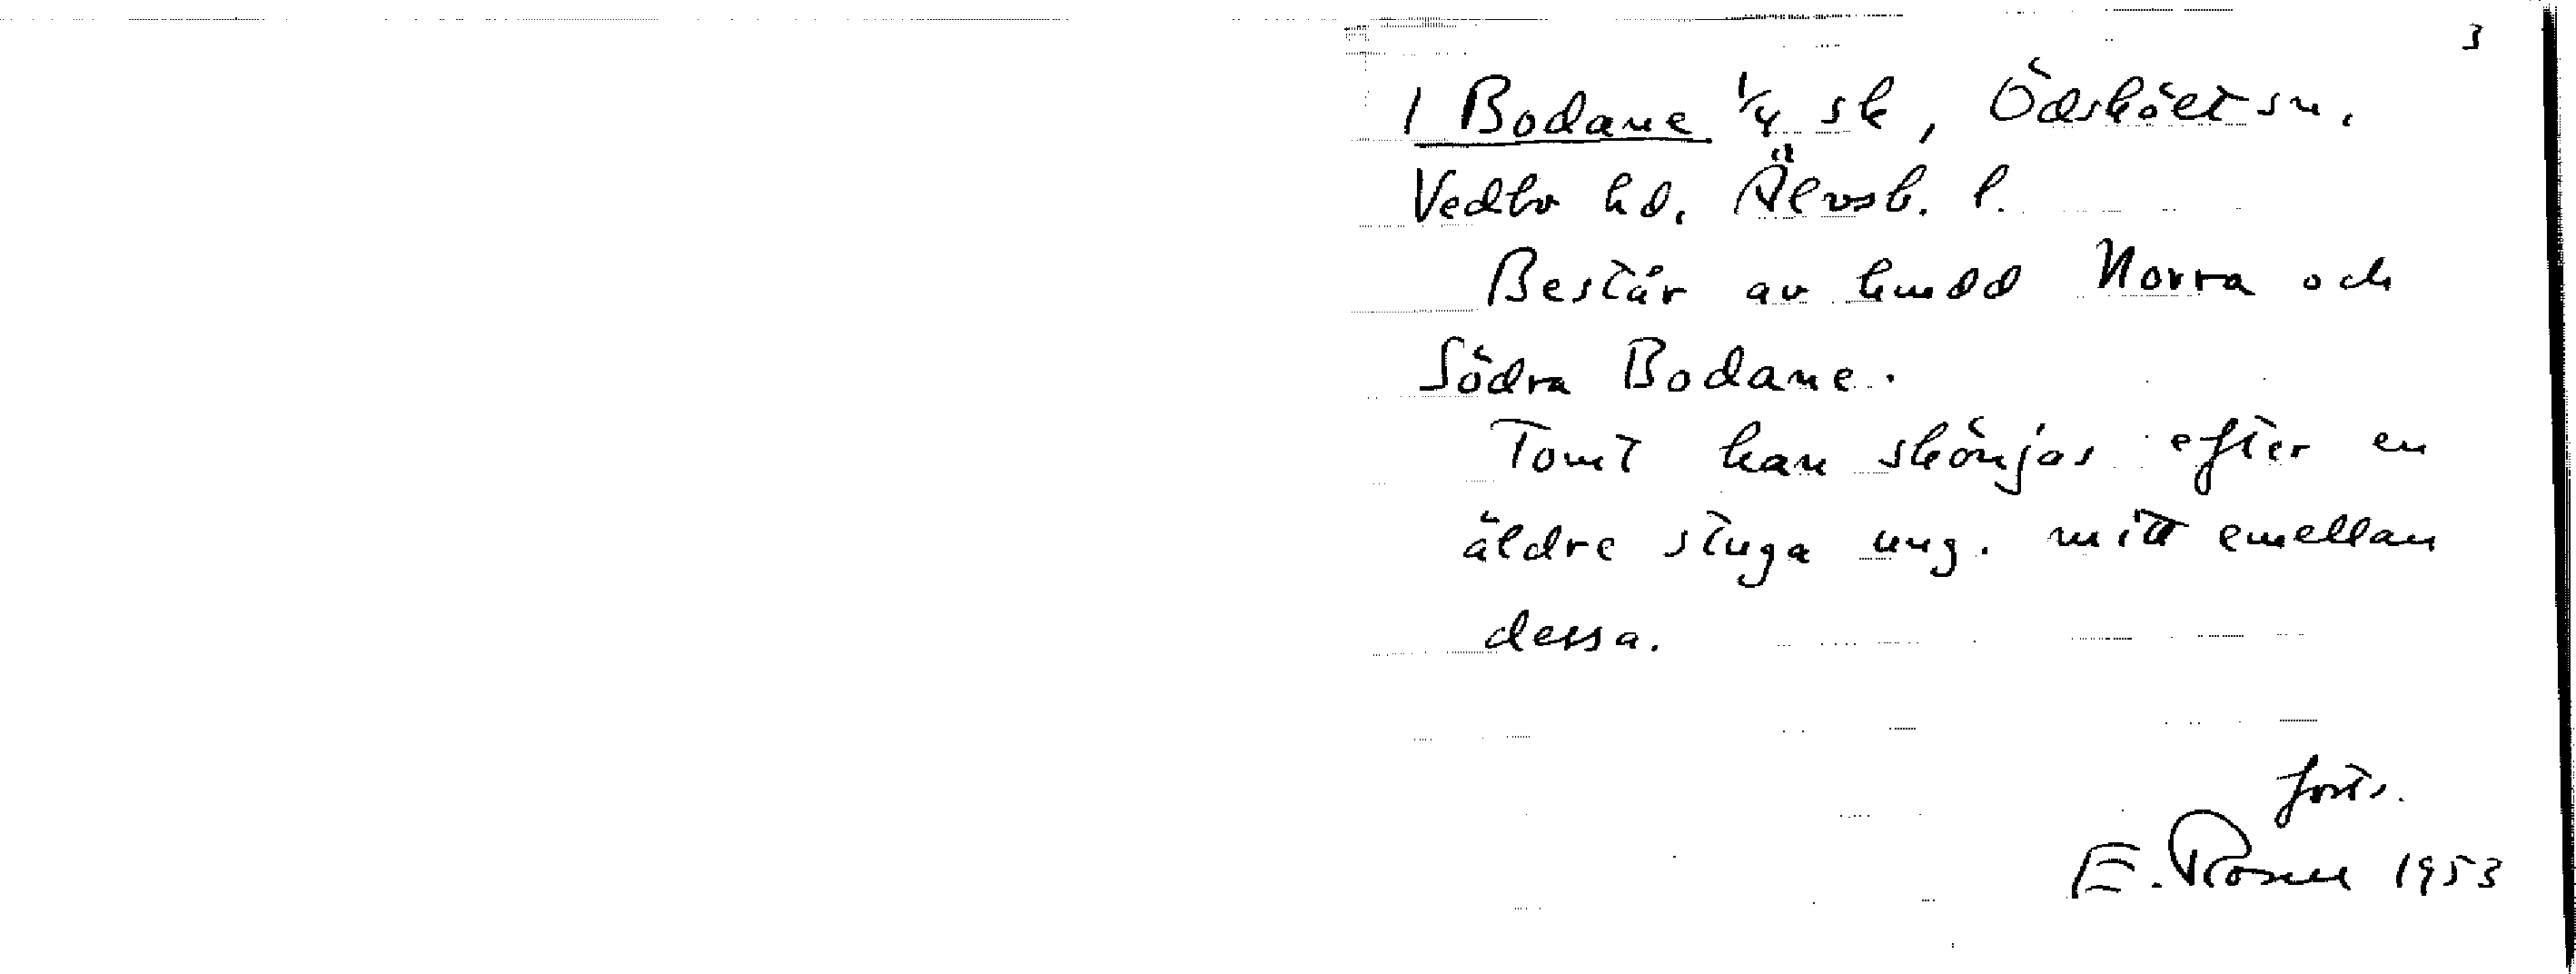 3
1 Bodane 1/4 sk, Ödskölt sn.
Vedbo hd. Älvsb. l.
Består av hmdd Norra och
Södra Bodane.
Tomt kan skönjas efter en
äldre stuga ung. mitt emellan
dessa.
forts.
E. Rosell 1953